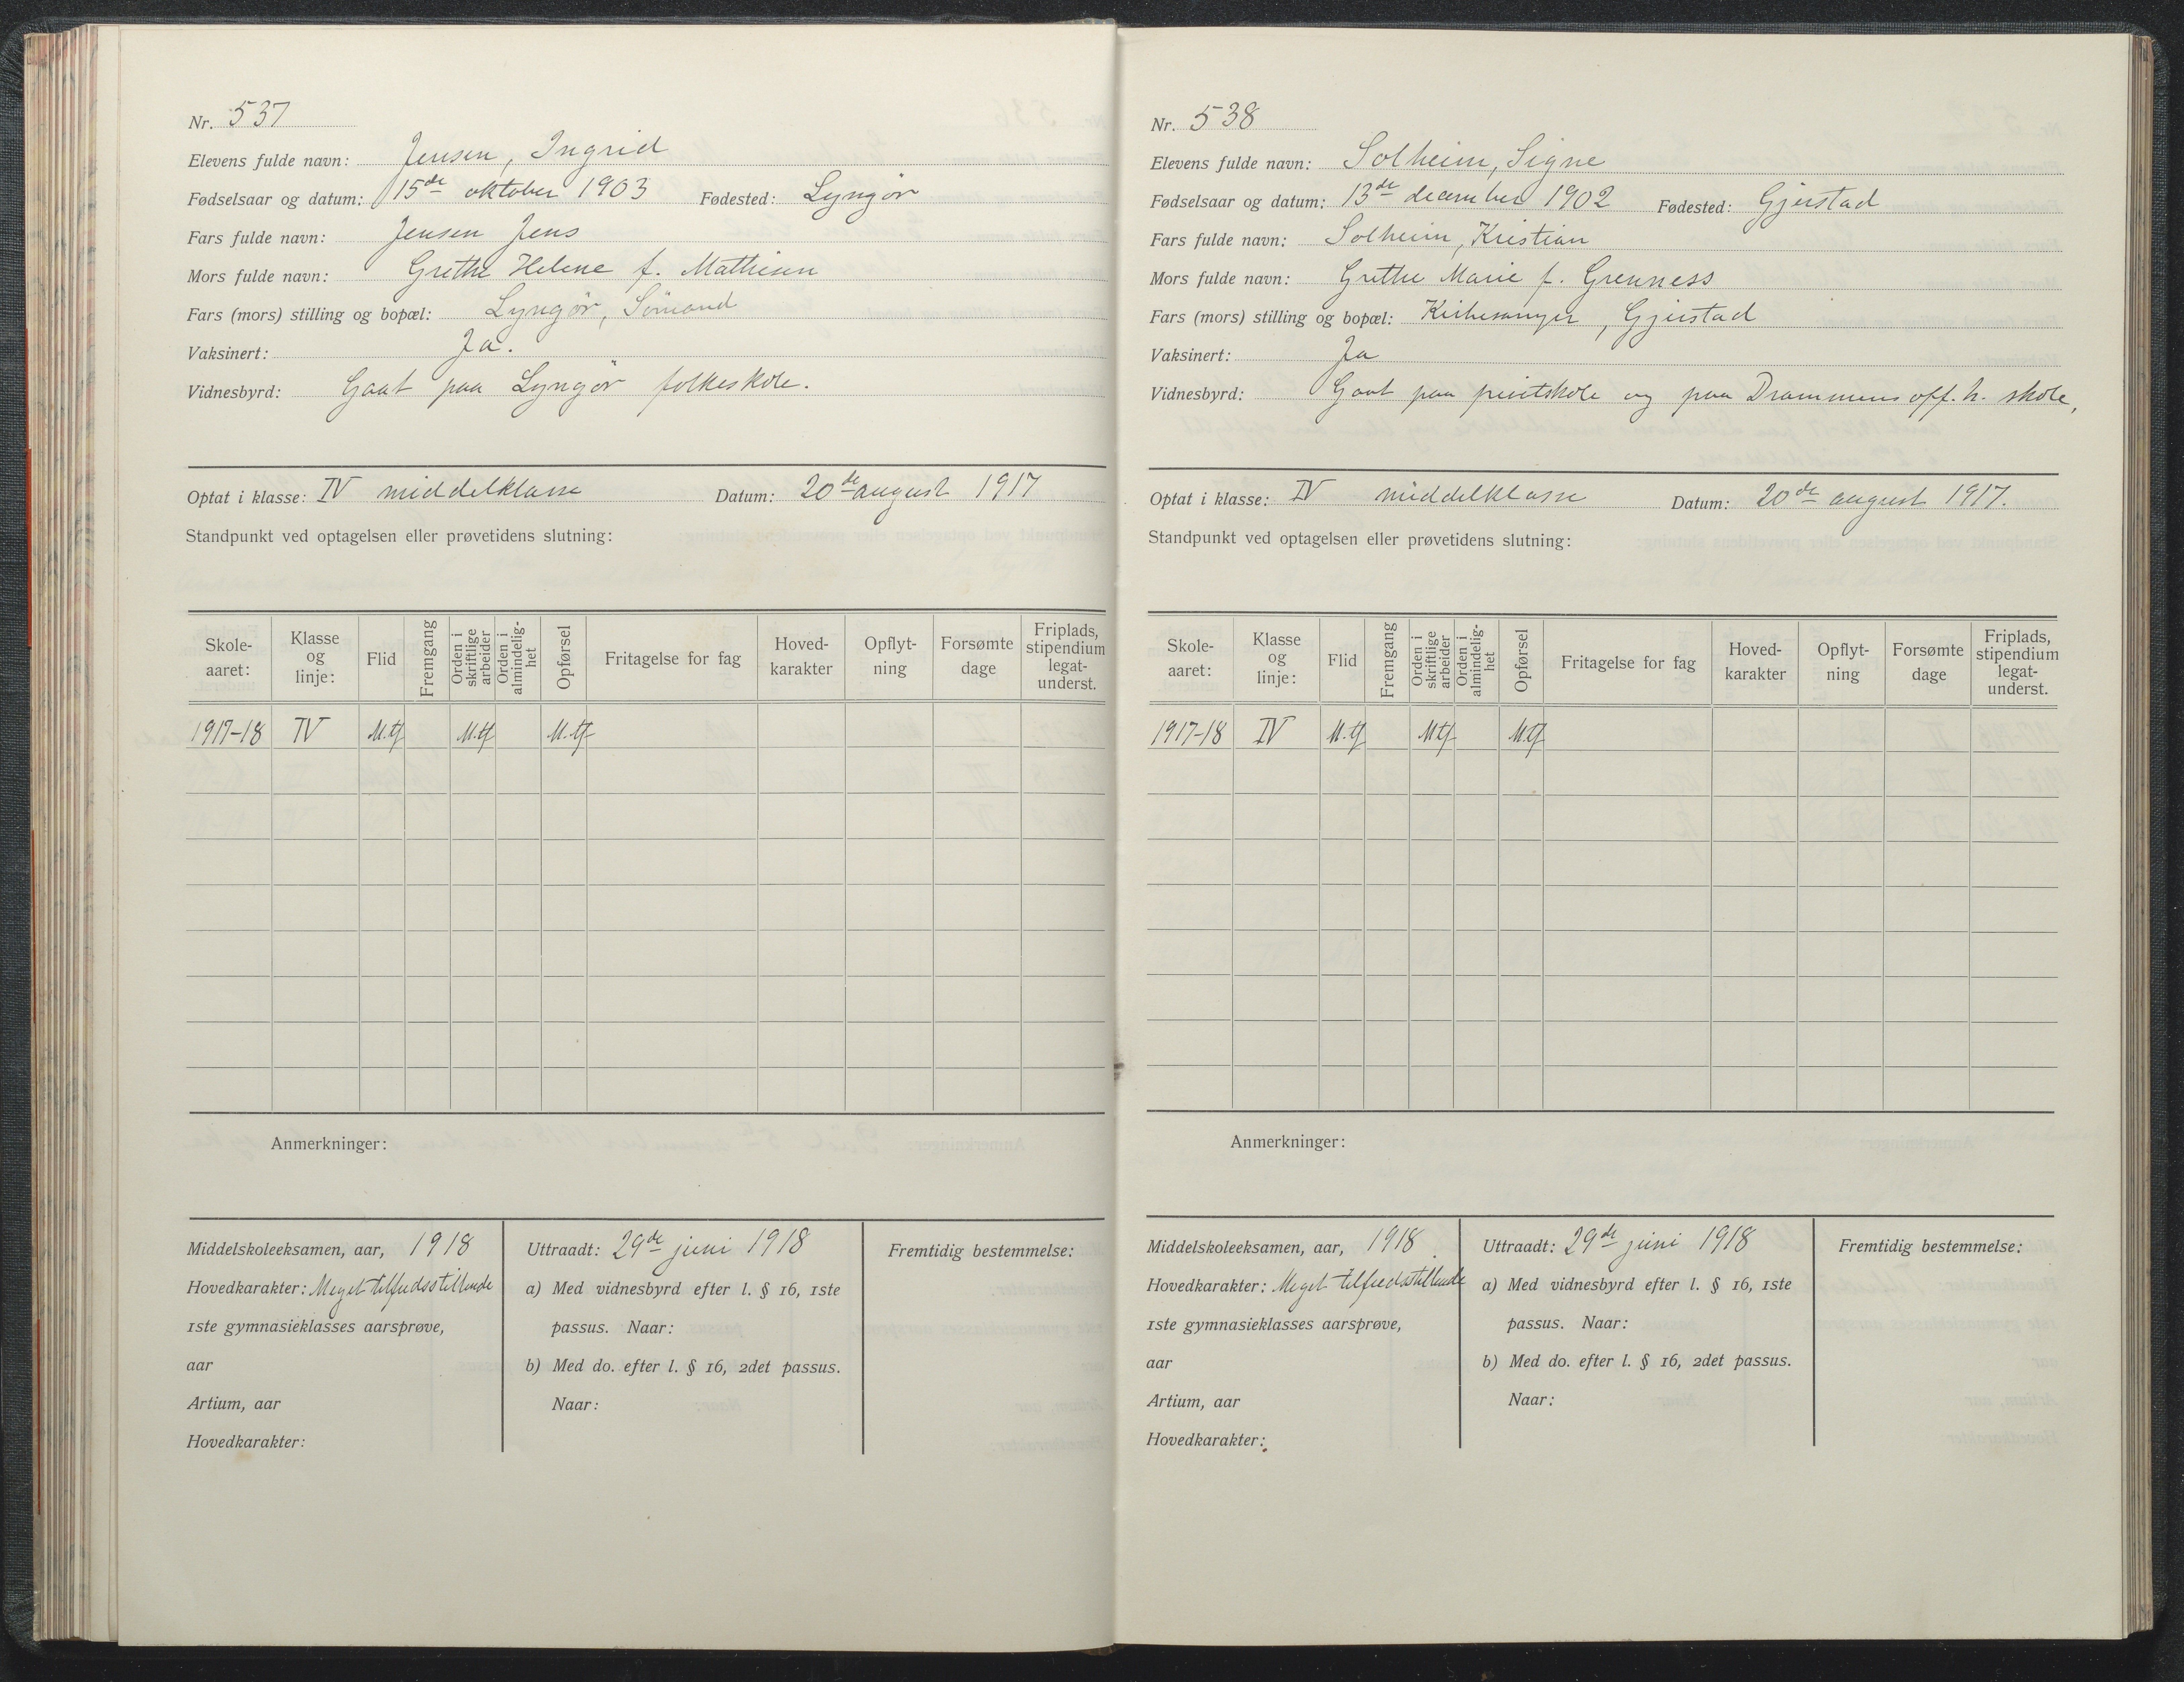 Nr. 537
Elevens fulde navn: Jensen, Ingrid
Fødselsaar og datum: 15de oktober 1903 Fødested: Lyngør
Fars fulde navn: Jensen Jens
Mors fulde navn: Grethe Helene f. Mathisen
Fars (mors) stilling og bopæl: Lyngør, Sømand
Vaksinert: Ja.
Vidnesbyrd: Gaat paa Lyngør folkeskole.
Optat i klasse: IV middelklasse Datum: 20de august 1917
Standpunkt ved optagelsen eller prøvetidens slutning:
Skole-aaret: Klasse og linje: Flid Fremgang Orden i skriftlige arbeider Orden i almindelig-het Opførsel Fritagelse for fag Hoved-karakter Opflyt-ning Forsømte dage Friplads, stipendium legat-underst.
1917-18 IV M.tf M.tf M.tf
Anmerkninger:
Middelskoleeksamen, aar, 1918
Hovedkarakter: Meget tilfredsstillende
1ste gymnasieklasses aarsprøve,
aar
Artium, aar
Hovedkarakter:
Uttraadt: 29de juni 1918
a) Med vidnesbyrd efter l. § 16, 1ste
passus. Naar:
b) Med do. efter l. § 16, 2det passus.
Naar:
Fremtidig bestemmelse:
Nr. 538
Elevens fulde navn: Solheim, Signe
Fødselsaar og datum: 13de december 1902 Fødested: Gjerstad
Fars fulde navn: Solheim, Kristian
Mors fulde navn: Grethe Marie f. Grenness
Fars (mors) stilling og bopæl: Kirkesanger, Gjerstad
Vaksinert: Ja
Vidnesbyrd: Gaat paa privatskole og paa Drammens off. h. skole,
Optat i klasse: IV middelklasse Datum: 20de august 1917.
Standpunkt ved optagelsen eller prøvetidens slutning:
Skole-aaret: Klasse og linje: Flid Fremgang Orden i skriftlige arbeider Orden i almindelig-het Opførsel Fritagelse for fag Hoved-karakter Opflyt-ning Forsømte dage Friplads, stipendium legat-underst.
1917-18 IV M.tf Mtf M.tf
Anmerkninger:
Middelskoleeksamen, aar, 1918
Hovedkarakter: Meget tilfredsstillende
1ste gymnasieklasses aarsprøve,
aar
Artium, aar
Hovedkarakter:
Uttraadt: 29de juni 1918
a) Med vidnesbyrd efter l. § 16, 1ste
passus. Naar:
b) Med do. efter l. § 16, 2det passus.
Naar:
Fremtidig bestemmelse: